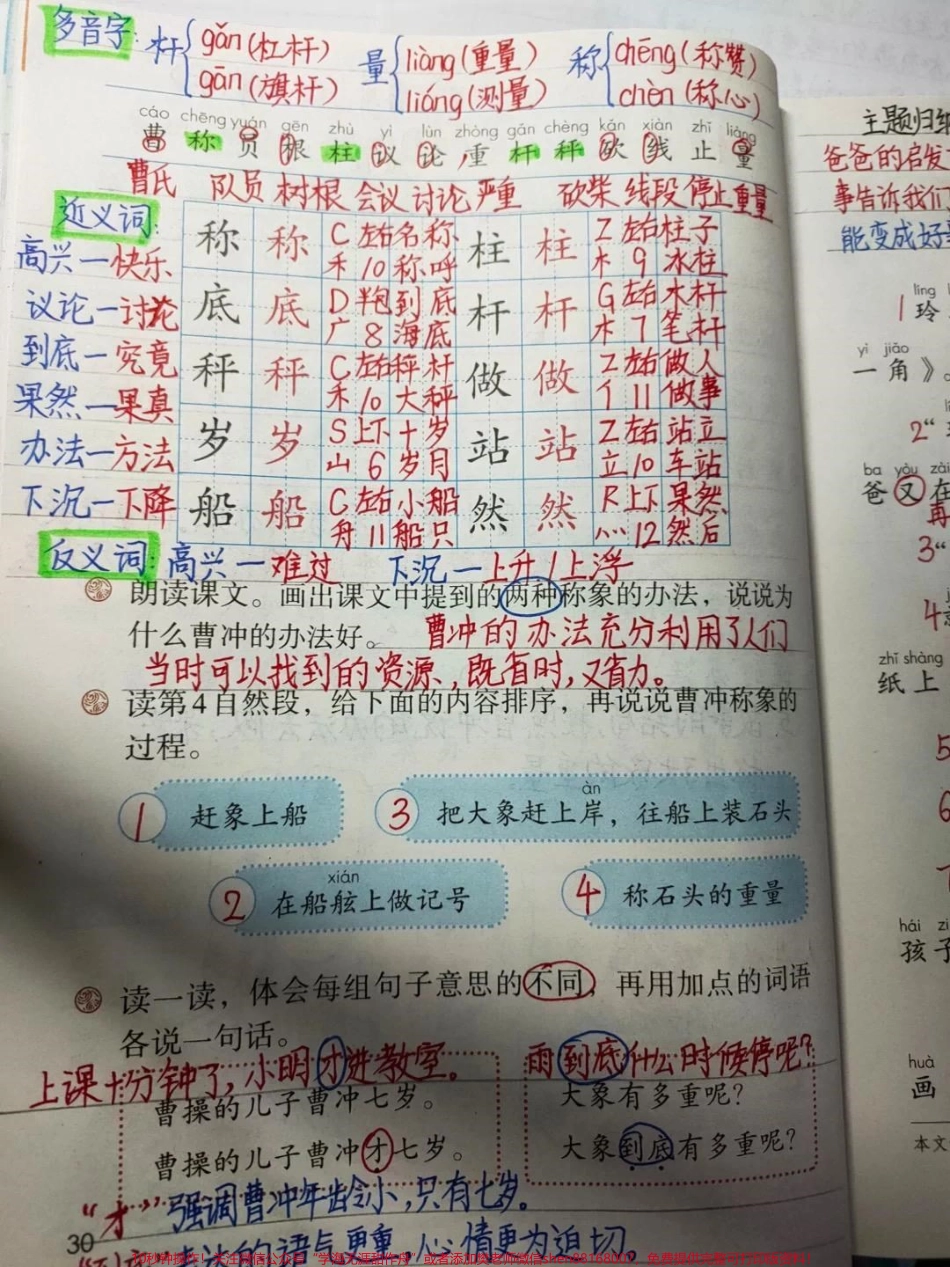 多音字: 杆{gǎn(杠杆) 量{liàng(重量) 称{chēng(称赞)
gān(旗杆) liáng(测量) chèn(称心)
cáo chēng yuán gēn zhù yì lùn zhòng gǎn chèng kǎn xiàn zhǐ liàng
曹 称 员 根 柱 议 论 重 杆 秤 砍 线 止 量
曹氏 队员 树根 会议 讨论 严重 砍柴 线段 停止 重量
近义词:
高兴—快乐
议论—讨论
到底—究竟
果然—果真
办法—方法
下沉—下降
称 称 C 左右 名称 柱 柱 Z 左右 柱子
禾 10 称呼 木 9 冰柱
底 底 D 半包 到底 杆 杆 G 左右 木杆
广 8 海底 木 7 笔杆
秤 秤 C 左右 秤杆 做 做 Z 左右 做人
禾 10 大秤 亻 11 做事
岁 岁 S 上下 十岁 站 站 Z 左右 站立
山 6 岁月 立 10 车站
船 船 C 左右 小船 然 然 R 上下 果然
舟 11 船只 灬 12 然后
反义词: 高兴—难过 下沉—上升/上浮
朗读课文。画出课文中提到的两种称象的办法，说说为
什么曹冲的办法好。 曹冲的办法充分利用了人们
当时可以找到的资源，既省时，又省力。
读第4自然段，给下面的内容排序，再说说曹冲称象的
过程。
àn
1 赶象上船 3 把大象赶上岸，往船上装石头
xián
2 在船舷上做记号 4 称石头的重量
读一读，体会每组句子意思的不同，再用加点的词语
各说一句话。
上课十分钟了，小明才进教室。 雨到底什么时候停呢？
曹操的儿子曹冲七岁。 大象有多重呢？
曹操的儿子曹冲才七岁。 大象到底有多重呢？
“才” 强调曹冲年龄小，只有七岁。
30
的语气更重，心情更为迫切
主题归纳
爸爸的启发
事告诉我们
能变成好
líng
1 玲
yì jiǎo
一角》。
2“
ba yòu zài
爸又在
再
3“
4
zhǐ shàng
纸上
5
6
hái zi
孩子
huà
画
本文